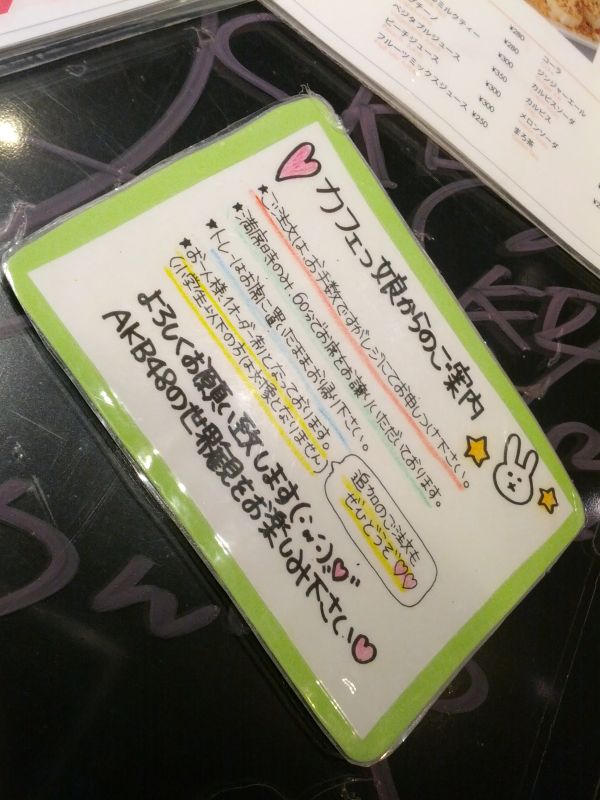 カフェっ娘からのご案内
★ご注文は、お手数ですがレジにてお申しつけ下さい。
★満席時のみ、60分でお席をお譲りいただいております。
★トレーはお席に置いたままお帰り下さい。
★お一人様1オーダー制となっております。
(小学生以下の方は対象となりません)
追加のご注文も
ぜひどうぞ♡♡
よろしくお願い致します(・ω・)♡
AKB48の世界観をお楽しみ下さい♡
ミルクティー ¥280
ベジタブルジュース ¥280
ピーチジュース ¥300
フルーツミックスジュース ¥350
¥300
¥300
¥250
コーラ
ジンジャーエール
カルピスソーダ
カルピス
メロンソーダ
まろ茶